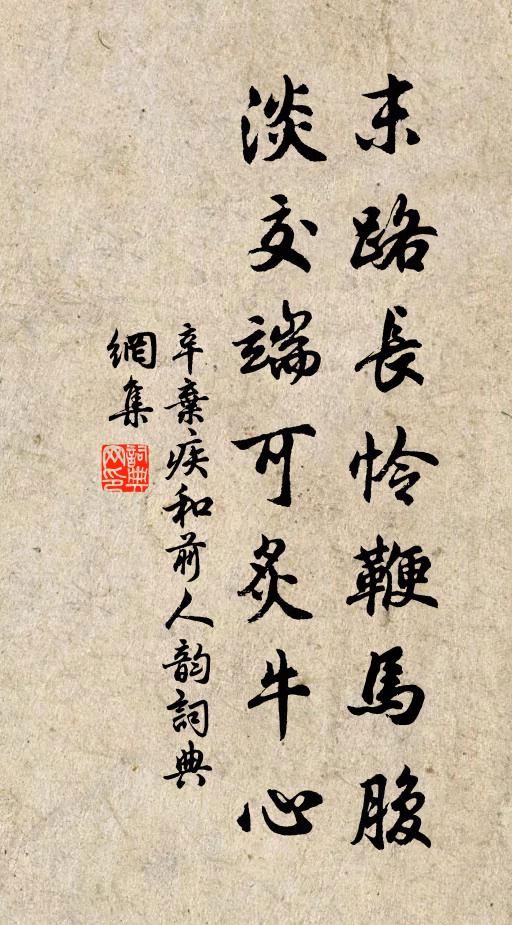 末路長怜鞭馬腹
淡交端可炙牛心
辛棄疾和前人韵詞典
網集
詞典
网印